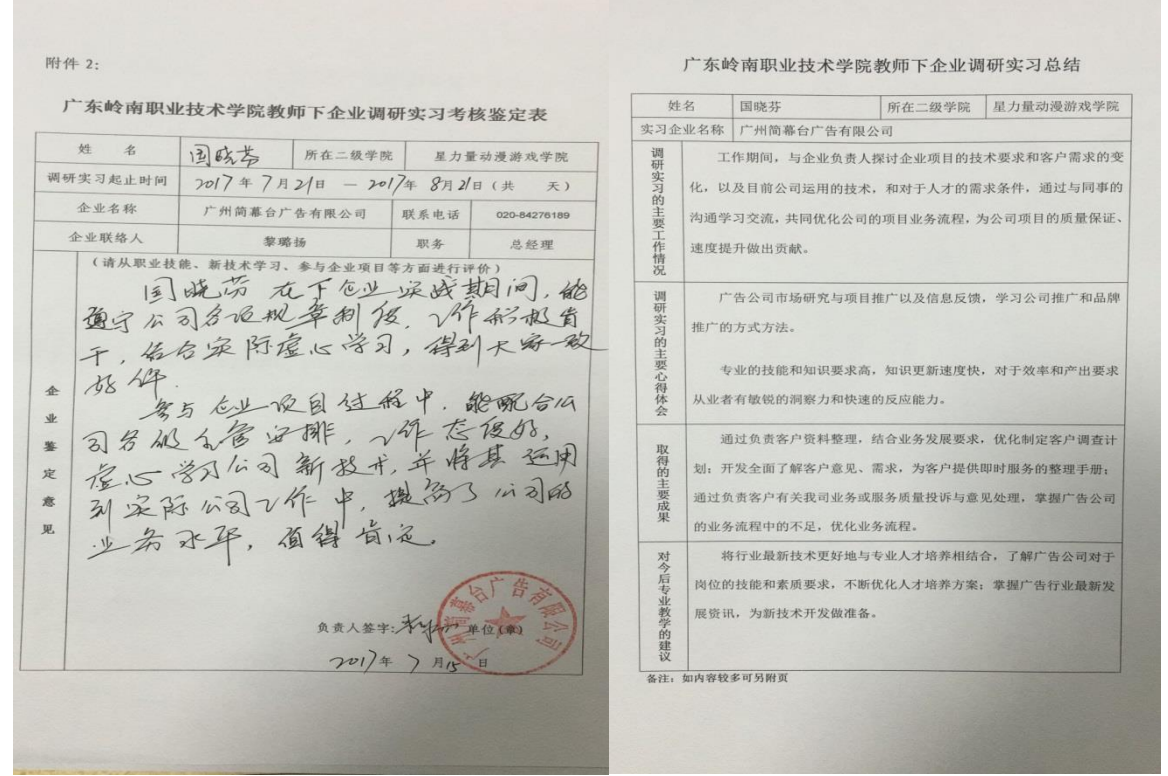 附件 2：
广东岭南职业技术学院教师下企业调研实习考核鉴定表
姓 名 国晓芬 所在二级学院 星力量动漫游戏学院
调研实习起止时间 2017年7月21日 — 2017年8月21日（共 天）
企业名称 广州简幕台广告有限公司 联系电话 020-84276189
企业联络人 黎璐扬 职务 总经理
企业鉴定意见
（请从职业技能、新技术学习、参与企业项目等方面进行评价）
国晓芬 在下企业实战期间，能
遵守公司各项规章制度，工作积极肯
干，结合实际虚心学习，得到大家一致
好评.
参与企业项目过程中，能配合公
司各级主管安排，工作态度好，
虚心学习公司新技术，并将其运用
到实际公司工作中，提高了公司的
业务水平，值得肯定。
负责人签字： 单位（章）
广州简幕台广告有限公司
2017年 7月15日
广东岭南职业技术学院教师下企业调研实习总结
姓名 国晓芬 所在二级学院 星力量动漫游戏学院
实习企业名称 广州简幕台广告有限公司
调研实习的主要工作情况
工作期间，与企业负责人探讨企业项目的技术要求和客户需求的变
化，以及目前公司运用的技术，和对于人才的需求条件，通过与同事的
沟通学习交流，共同优化公司的项目业务流程，为公司项目的质量保证、
速度提升做出贡献。
调研实习的主要心得体会
广告公司市场研究与项目推广以及信息反馈，学习公司推广和品牌
推广的方式方法。
专业的技能和知识要求高，知识更新速度快，对于效率和产出要求
从业者有敏锐的洞察力和快速的反应能力。
取得的主要成果
通过负责客户资料整理，结合业务发展要求，优化制定客户调查计
划；开发全面了解客户意见、需求，为客户提供即时服务的整理手册；
通过负责客户有关我司业务或服务质量投诉与意见处理，掌握广告公司
的业务流程中的不足，优化业务流程。
对今后专业教学的建议
将行业最新技术更好地与专业人才培养相结合，了解广告公司对于
岗位的技能和素质要求，不断优化人才培养方案；掌握广告行业最新发
展资讯，为新技术开发做准备。
备注：如内容较多可另附页